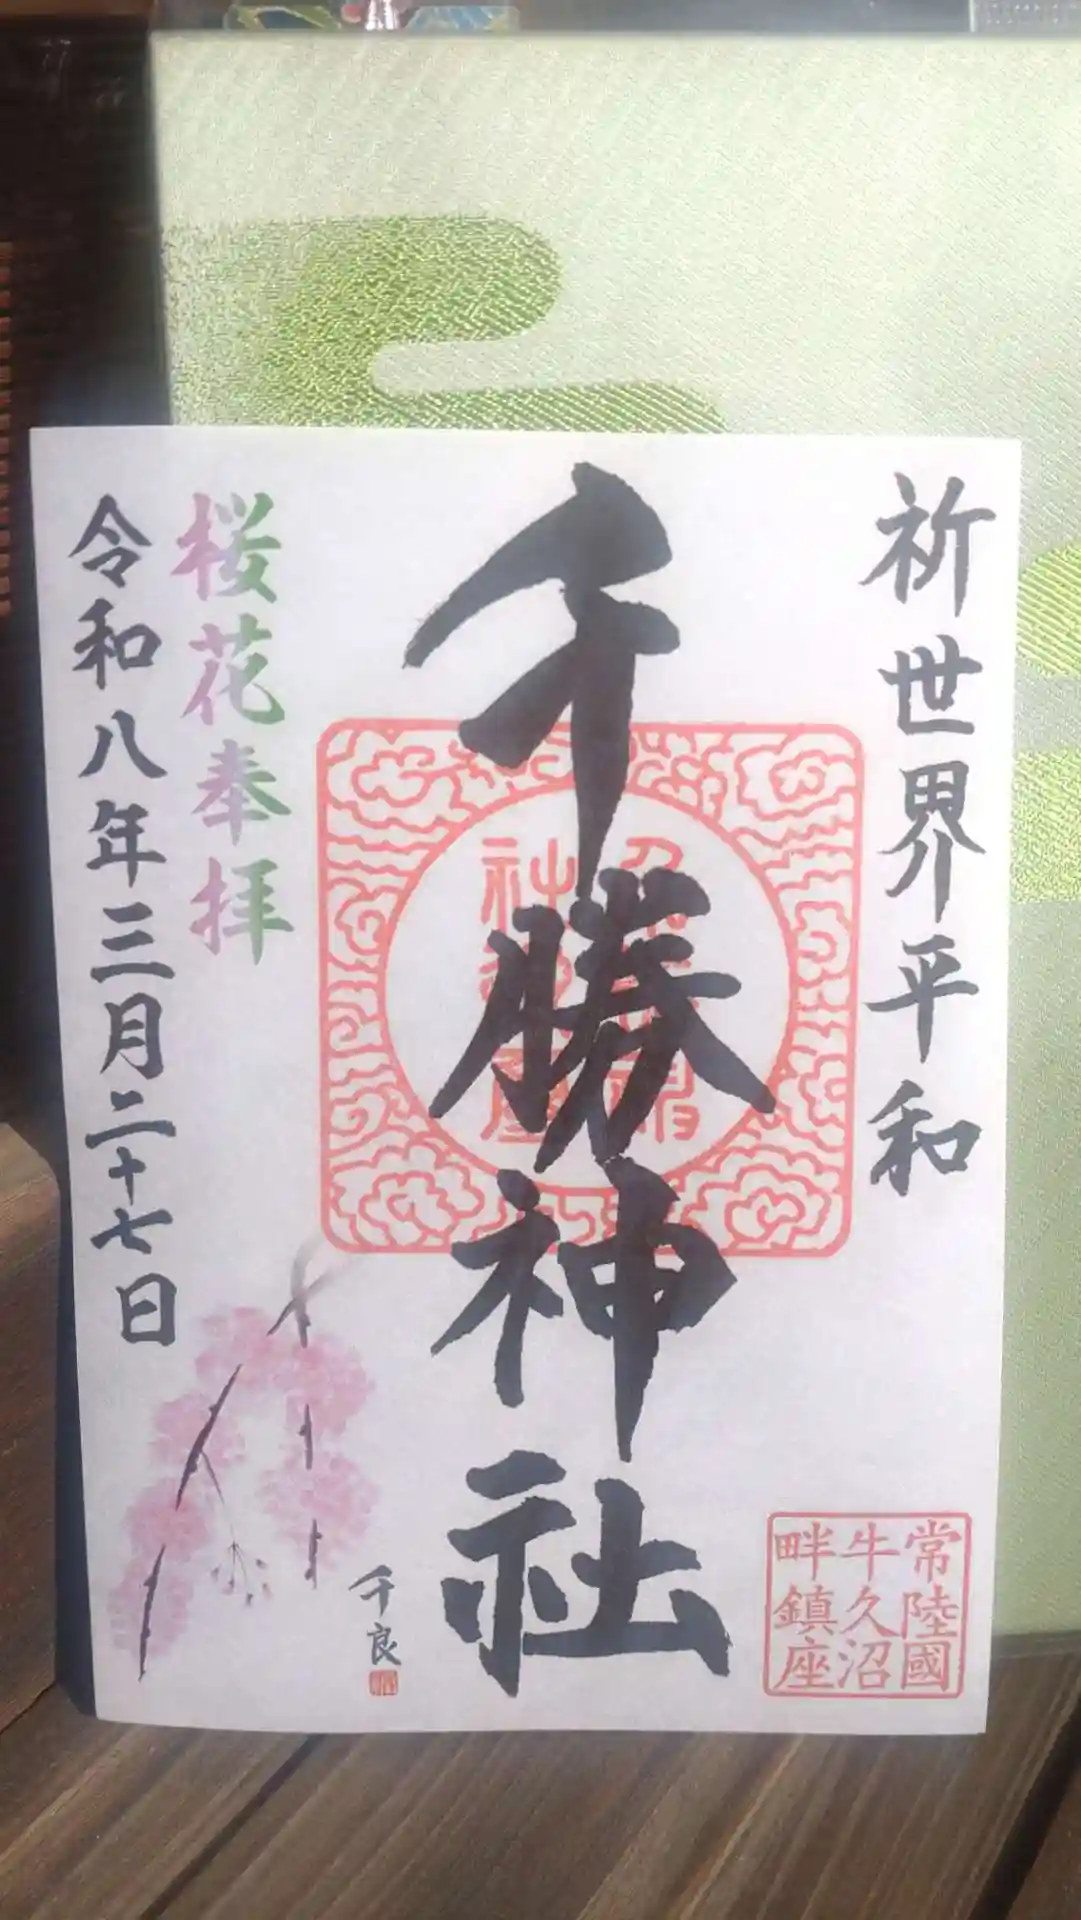 祈世界平和
千勝神社
桜花奉拝
令和八年三月二十七日
千良
常陸國
牛久沼
畔鎮座